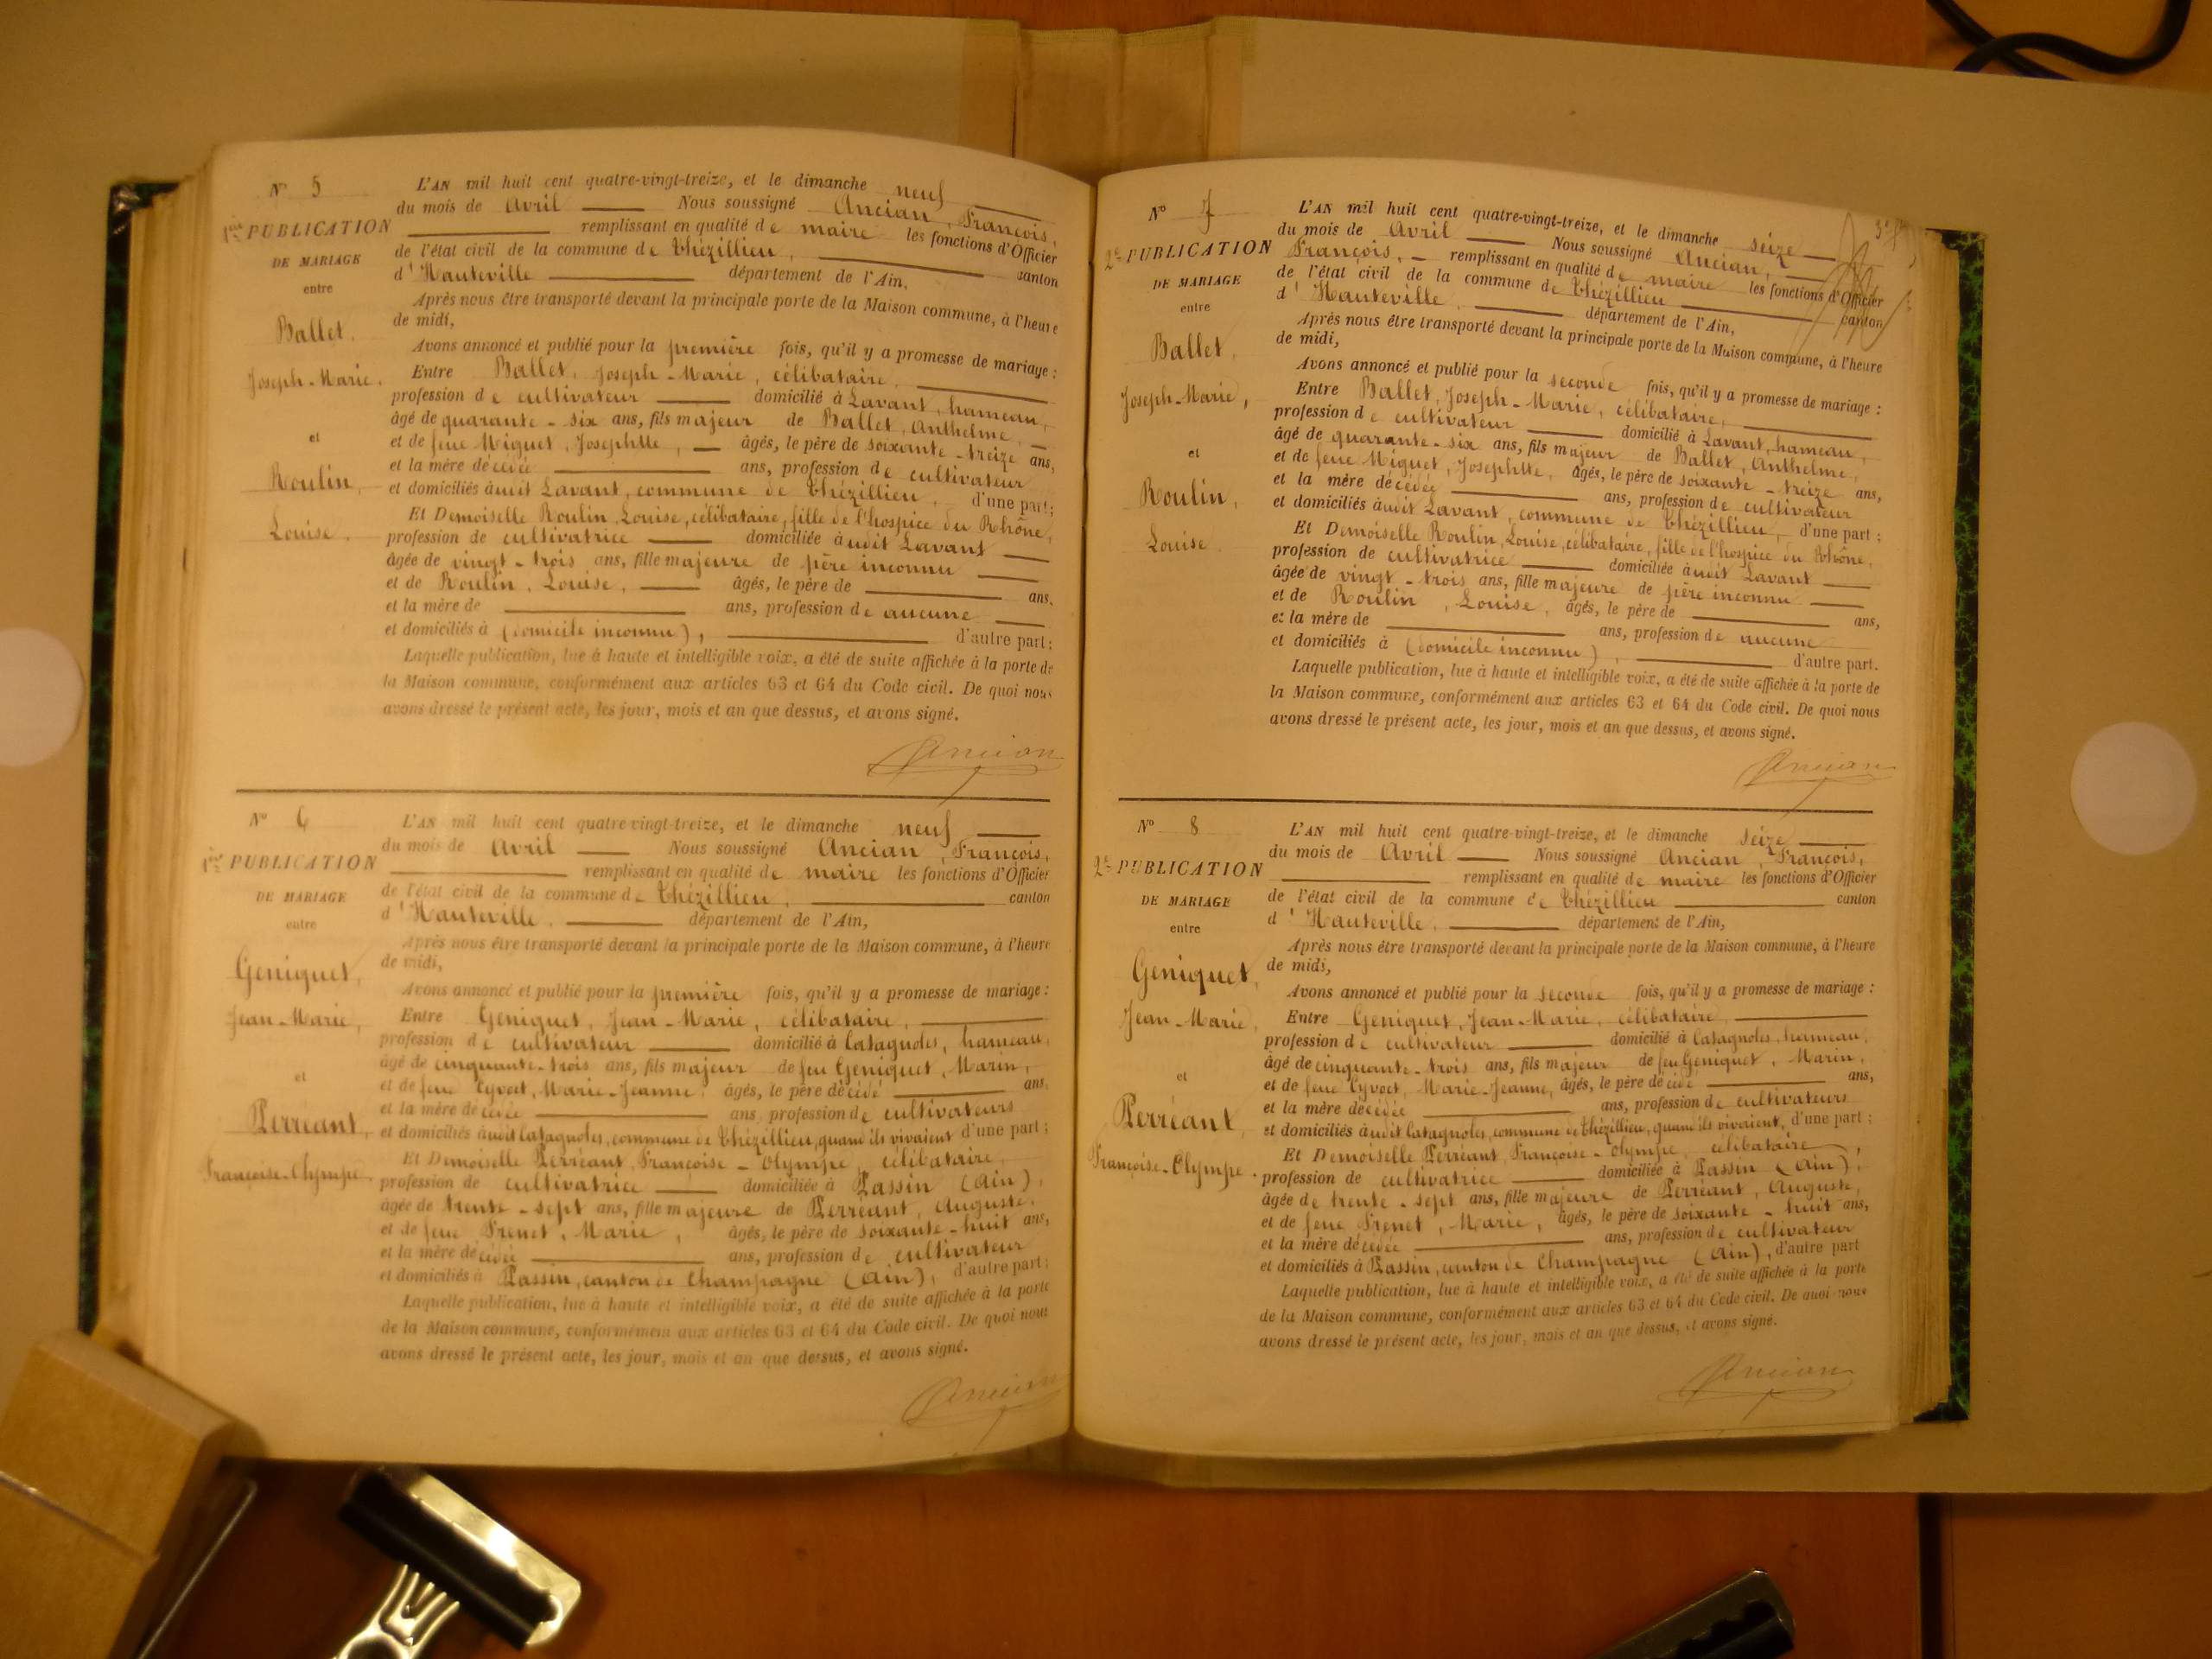 N° 5
1ère PUBLICATION
DE MARIAGE
entre
Ballet,
Joseph-Marie,
et
Roulin,
Louise.
L'AN mil huit cent quatre-vingt-treize, et le dimanche neuf
du mois de Avril Nous soussigné Ancian, François,
remplissant en qualité de maire les fonctions d'Officier
de l'état civil de la commune de Thézillieu, canton
d'Hauteville département de l'Ain,
Après nous être transporté devant la principale porte de la Maison commune, à l'heure
de midi,
Avons annoncé et publié pour la première fois, qu'il y a promesse de mariage :
Entre Ballet, Joseph-Marie, célibataire,
profession de cultivateur domicilié à Lavant, hameau,
âgé de quarante-six ans, fils majeur de Ballet, Anthelme,
et de feue Miguet, Josephtte, âgés, le père de soixante-treize ans,
et la mère décédée ans, profession de cultivateur
et domiciliés àudit Lavant, commune de Thézillieu, d'une part;
Et Demoiselle Roulin, Louise, célibataire, fille de l'hospice du Rhône,
profession de cultivatrice domiciliée àudit Lavant
âgée de vingt-trois ans, fille majeure de père inconnu
et de Roulin, Louise, âgés, le père de ans,
et la mère de ans, profession de aucune
et domiciliés à (domicile inconnu), d'autre part;
Laquelle publication, lue à haute et intelligible voix, a été de suite affichée à la porte de
la Maison commune, conformément aux articles 63 et 64 du Code civil. De quoi nous
avons dressé le présent acte, les jour, mois et an que dessus, et avons signé.
Ancian
N° 6
1ère PUBLICATION
DE MARIAGE
entre
Geniquet,
Jean-Marie,
et
Perréant,
Françoise-Olympe.
L'AN mil huit cent quatre-vingt-treize, et le dimanche neuf
du mois de Avril Nous soussigné Ancian, François,
remplissant en qualité de maire les fonctions d'Officier
de l'état civil de la commune de Thézillieu, canton
d'Hauteville, département de l'Ain,
Après nous être transporté devant la principale porte de la Maison commune, à l'heure
de midi,
Avons annoncé et publié pour la première fois, qu'il y a promesse de mariage :
Entre Geniquet, Jean-Marie, célibataire,
profession de cultivateur domicilié à Catagnoles, hameau,
âgé de cinquante-trois ans, fils majeur de feu Geniquet, Marin,
et de feue Cyvoct, Marie-Jeanne, âgés, le père décédé ans,
et la mère décédée ans, profession de cultivateurs
et domiciliés àudit Catagnoles, commune de Thézillieu, quand ils vivaient d'une part;
Et Demoiselle Perréant, Françoise-Olympe, célibataire,
profession de cultivatrice domiciliée à Passin (Ain),
âgée de trente-sept ans, fille majeure de Perréant, Auguste,
et de feue Frenet, Marie, âgés, le père de soixante-huit ans,
et la mère décédée ans, profession de cultivateur
et domiciliés à Passin, canton de Champagne (Ain), d'autre part;
Laquelle publication, lue à haute et intelligible voix, a été de suite affichée à la porte
de la Maison commune, conformément aux articles 63 et 64 du Code civil. De quoi nous
avons dressé le présent acte, les jour, mois et an que dessus, et avons signé.
Ancian
N° 7
2e PUBLICATION
DE MARIAGE
entre
Ballet,
Joseph-Marie,
et
Roulin,
Louise.
L'AN mil huit cent quatre-vingt-treize, et le dimanche seize
du mois de Avril Nous soussigné Ancian,
François, remplissant en qualité de maire les fonctions d'Officier
de l'état civil de la commune de Thézillieu canton
d'Hauteville, département de l'Ain,
Après nous être transporté devant la principale porte de la Maison commune, à l'heure
de midi,
Avons annoncé et publié pour la seconde fois, qu'il y a promesse de mariage :
Entre Ballet, Joseph-Marie, célibataire,
profession de cultivateur domicilié à Lavant, hameau,
âgé de quarante-six ans, fils majeur de Ballet, Anthelme,
et de feue Miguet, Josephtte, âgés, le père de soixante-treize ans,
et la mère décédée ans, profession de cultivateur
et domiciliés àudit Lavant, commune de Thézillieu, d'une part;
Et Demoiselle Roulin, Louise, célibataire, fille de l'hospice du Rhône,
profession de cultivatrice domiciliée àudit Lavant
âgée de vingt-trois ans, fille majeure de père inconnu
et de Roulin, Louise, âgés, le père de ans,
et la mère de ans, profession de aucune
et domiciliés à (domicile inconnu), d'autre part.
Laquelle publication, lue à haute et intelligible voix, a été de suite affichée à la porte de
la Maison commune, conformément aux articles 63 et 64 du Code civil. De quoi nous
avons dressé le présent acte, les jour, mois et an que dessus, et avons signé.
Ancian
N° 8
2e PUBLICATION
DE MARIAGE
entre
Geniquet,
Jean-Marie,
et
Perréant,
Françoise-Olympe.
L'AN mil huit cent quatre-vingt-treize, et le dimanche seize
du mois de Avril Nous soussigné Ancian, François,
remplissant en qualité de maire les fonctions d'Officier
de l'état civil de la commune de Thézillieu canton
d'Hauteville, département de l'Ain,
Après nous être transporté devant la principale porte de la Maison commune, à l'heure
de midi,
Avons annoncé et publié pour la seconde fois, qu'il y a promesse de mariage :
Entre Geniquet, Jean-Marie, célibataire,
profession de cultivateur domicilié à Catagnoles, hameau,
âgé de cinquante-trois ans, fils majeur de feu Geniquet, Marin,
et de feue Cyvoct, Marie-Jeanne, âgés, le père décédé ans,
et la mère décédée ans, profession de cultivateurs
et domiciliés àudit Catagnoles, commune de Thézillieu, quand ils vivaient, d'une part;
Et Demoiselle Perréant, Françoise-Olympe, célibataire,
profession de cultivatrice domiciliée à Passin (Ain),
âgée de trente-sept ans, fille majeure de Perréant, Auguste,
et de feue Frenet, Marie, âgés, le père de soixante-huit ans,
et la mère décédée ans, profession de cultivateur
et domiciliés à Passin, canton de Champagne (Ain), d'autre part
Laquelle publication, lue à haute et intelligible voix, a été de suite affichée à la porte
de la Maison commune, conformément aux articles 63 et 64 du Code civil. De quoi nous
avons dressé le présent acte, les jour, mois et an que dessus, et avons signé.
Ancian